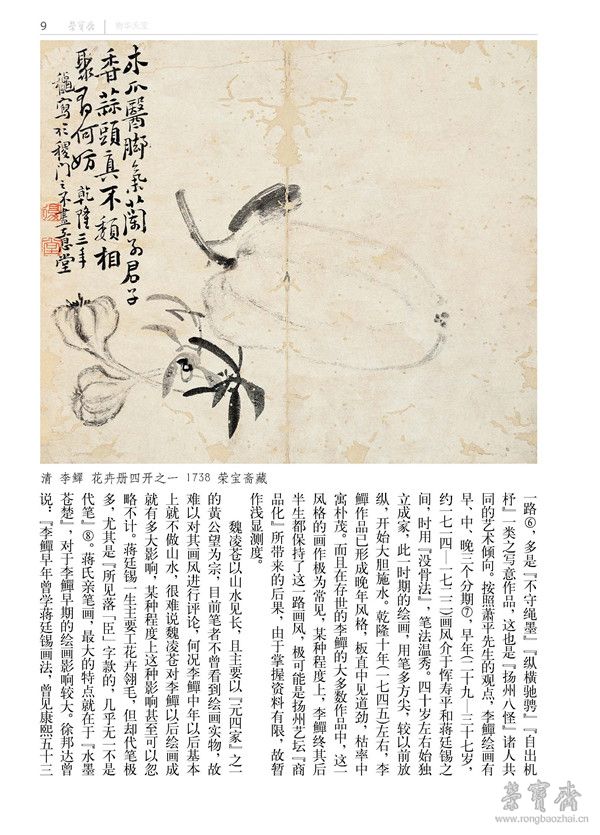 9
荣宝斋
物华天宝
木瓜醫脚氣蘭為君子
香蒜頭真不類相
聚有何妨 乾隆三年
寫於稷門之不盡意堂
清 李鱓 花卉册四开之一 1738 荣宝斋藏
一路⑥，多是『不守绳墨』『纵横驰骋』『自出机
杼』一类之写意作品，这也是『扬州八怪』诸人共
同的艺术倾向。按照萧平先生的观点，李鱓绘画有
早、中、晚三个分期⑦，早年（二十九—三十七岁，
约一七一四—一七二二）画风介于恽寿平和蒋廷锡之
间，时用『没骨法』，笔法温秀。四十岁左右始独
立成家，此一时期的绘画，用笔多方尖，较以前放
纵，开始大胆施水。乾隆十年（一七四五）左右，李
鱓作品已形成晚年风格，板直中见道劲，枯率中
寓朴茂。而且在存世的李鱓的大多数作品中，这一
风格的画作极为常见，某种程度上，李鱓终其后
半生都保持了这一路画风，极可能是扬州艺坛『商
品化』所带来的后果，由于掌握资料有限，故暂
作浅显测度。
魏凌苍以山水见长，且主要以『元四家』之一
的黄公望为宗，目前笔者不曾看到绘画实物，故
难以对其画风进行评论，何况李鱓中年以后基本
上就不做山水，很难说魏凌苍对李鱓以后绘画成
就有多大影响，某种程度上这种影响甚至可以忽
略不计。蒋廷锡一生主要工花卉翎毛，但却代笔极
多，尤其是『所见落「臣」字款的，几乎无一不是
代笔』⑧。蒋氏亲笔画，最大的特点就在于『水墨
苍楚』，对于李鱓早期的绘画影响较大。徐邦达曾
说：『李鱓早年曾学蒋廷锡画法，曾见康熙五十三
榮寶齋
www.rongbaozhai.cn